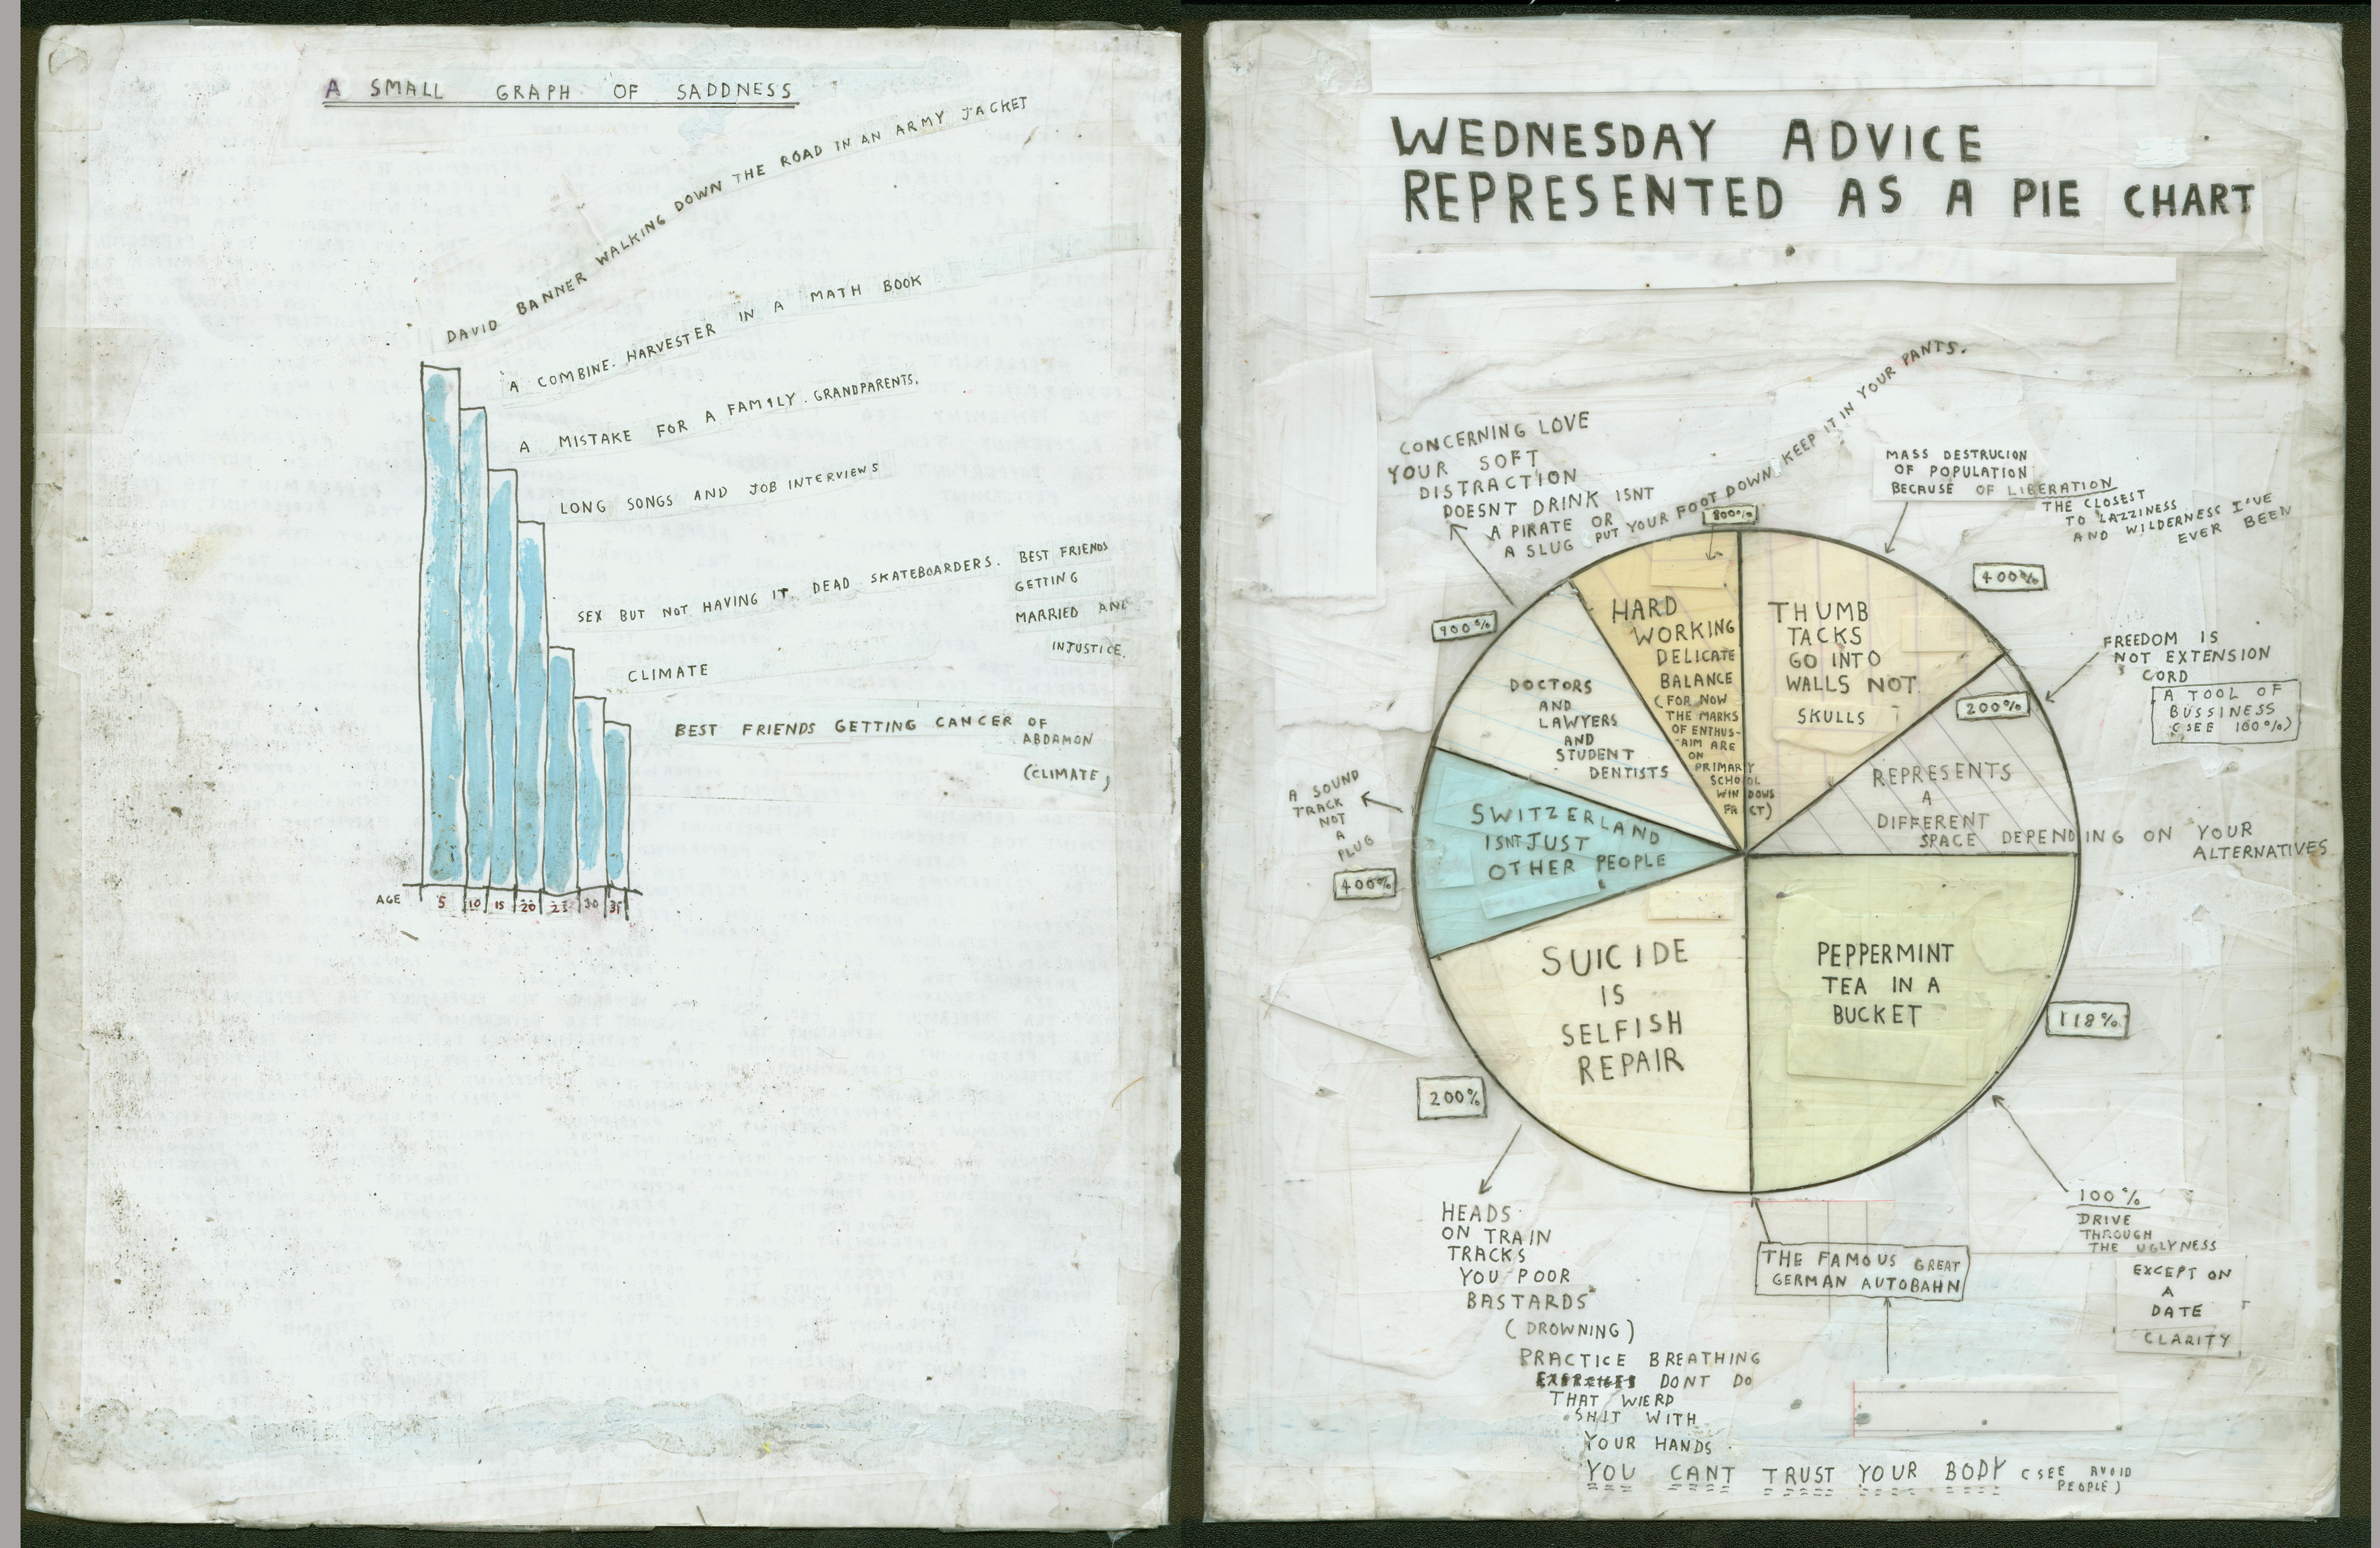 A SMALL GRAPH OF SADDNESS
DAVID BANNER WALKING DOWN THE ROAD IN AN ARMY JACKET
A COMBINE. HARVESTER IN A MATH BOOK
A MISTAKE FOR A FAMILY. GRANDPARENTS.
LONG SONGS AND JOB INTERVIEWS
SEX BUT NOT HAVING IT. DEAD SKATEBOARDERS. BEST FRIENDS
GETTING
MARRIED AND
INJUSTICE.
CLIMATE
BEST FRIENDS GETTING CANCER OF
ABDAMON
(CLIMATE)
AGE 5 10 15 20 25 30 35
WEDNESDAY ADVICE
REPRESENTED AS A PIE CHART
CONCERNING LOVE
YOUR SOFT
DISTRACTION
DOESNT DRINK ISNT
A PIRATE OR
A SLUG PUT YOUR FOOT DOWN, KEEP IT IN YOUR PANTS.
800%
MASS DESTRUCION
OF POPULATION
BECAUSE OF LIBERATION
THE CLOSEST
TO LAZZINESS
AND WILDERNESS I'VE
EVER BEEN
400%
FREEDOM IS
NOT EXTENSION
CORD
A TOOL OF
BUSSINESS
(SEE 100%)
200%
900%
HARD
WORKING
DELICATE
BALANCE
(FOR NOW
THE MARKS
OF ENTHUS-
-AIM ARE
ON
PRIMARY
SCHOOL
WINDOWS
FACT)
THUMB
TACKS
GO INTO
WALLS NOT
SKULLS
DOCTORS
AND
LAWYERS
AND
STUDENT
DENTISTS
REPRESENTS
A
DIFFERENT
SPACE DEPENDING ON YOUR
ALTERNATIVES
A SOUND
TRACK
NOT
A
PLUG
400%
SWITZERLAND
ISNT JUST
OTHER PEOPLE
SUICIDE
IS
SELFISH
REPAIR
PEPPERMINT
TEA IN A
BUCKET
118%
200%
HEADS
ON TRAIN
TRACKS
YOU POOR
BASTARDS
(DROWNING)
PRACTICE BREATHING
EXERCISES DONT DO
THAT WIERD
SHIT WITH
YOUR HANDS
YOU CANT TRUST YOUR BODY (SEE AVOID
PEOPLE)
THE FAMOUS GREAT
GERMAN AUTOBAHN
100%
DRIVE
THROUGH
THE UGLYNESS
EXCEPT ON
A
DATE
CLARITY